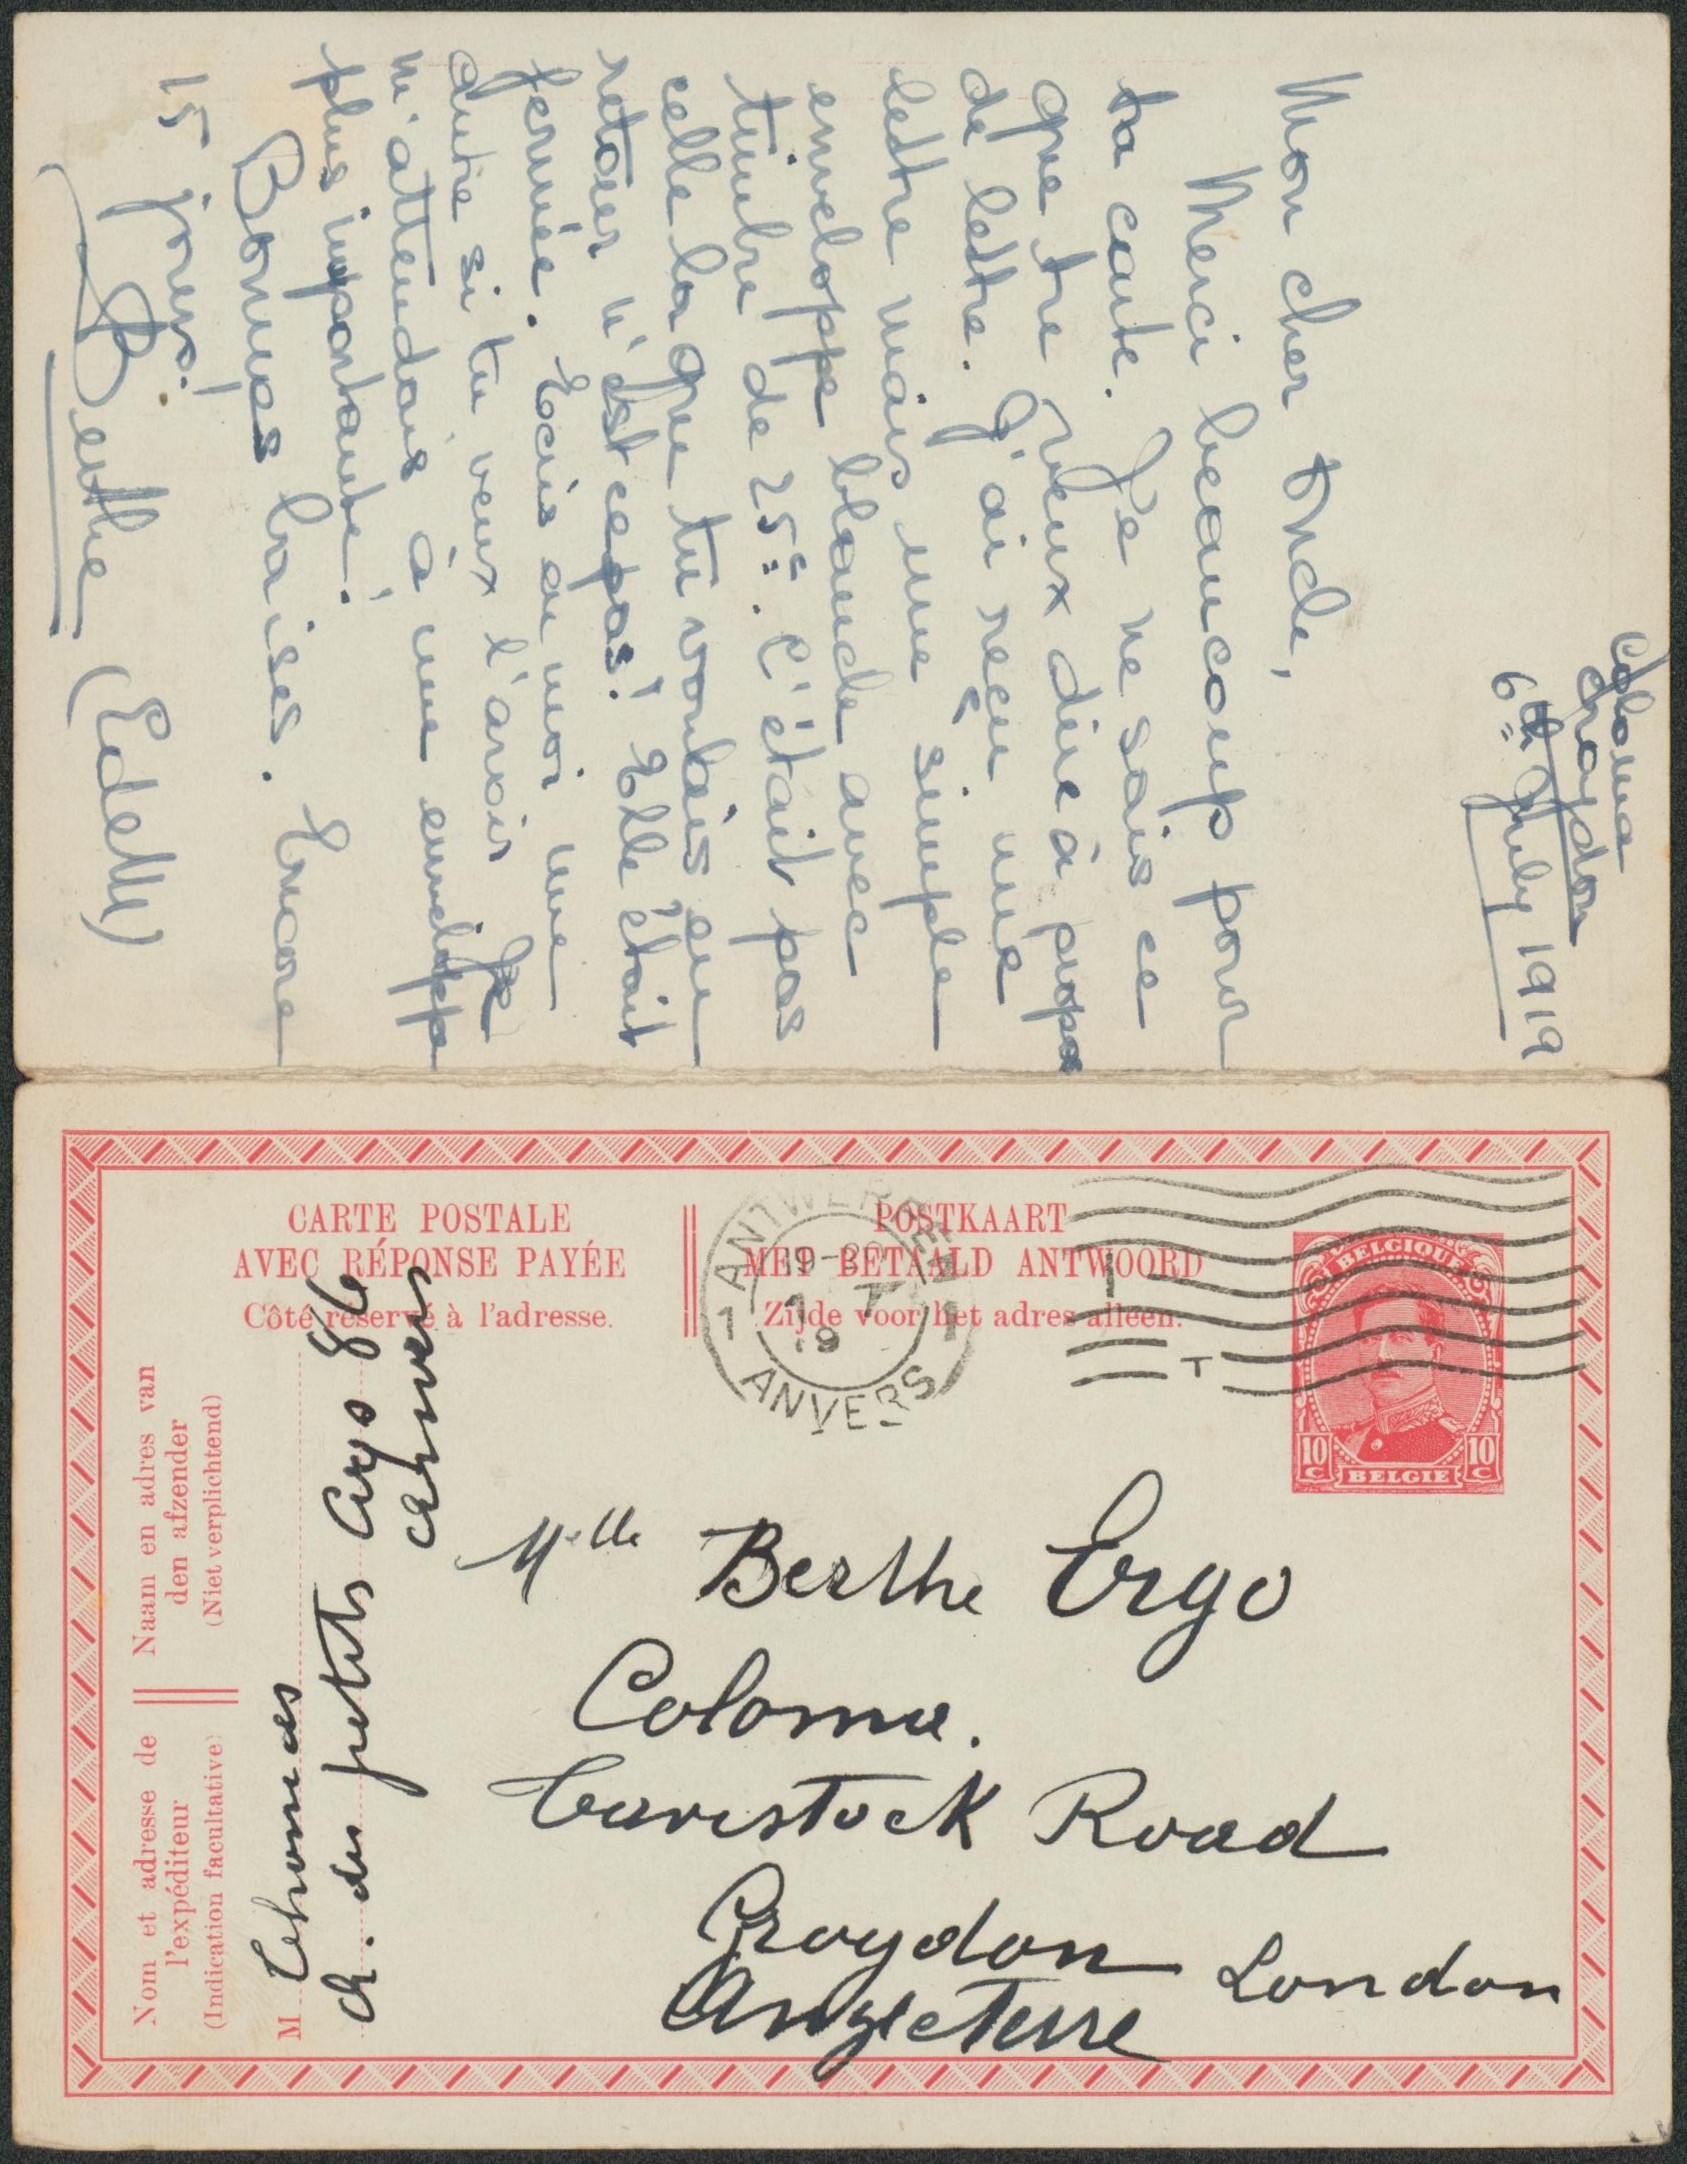 Coloma
Croydon
6th July 1919
Mon cher Oncle,
Merci beaucoup pour
ta carte. Je ne sais ce
que tu veux dire à propos
de lettre. J'ai reçu une
lettre mais une simple
enveloppe blanche avec
timbre de 25c. C'était pas
celle la que tu voulais en
retour n'est ce pas! Elle était
fermée. Ecris au moi une
autre si tu veux l'avoir Je
m'attendais à une enveloppe
plus importante!
Bonnes baises. Encore
15 jours!
Berthe (Edell)
CARTE POSTALE
AVEC RÉPONSE PAYÉE
Côté réservé à l'adresse.
POSTKAART
MET BETAALD ANTWOORD
Zijde voor het adres alleen.
1 ANTWERPEN 1
19-20
1 7
19
ANVERS
BELGIQUE
10 C 10 C
BELGIE
Naam en adres van
den afzender
(Niet verplichtend)
Nom et adresse de
l'expéditeur
(Indication facultative)
M
R. des petits 86
Anvers
Melle Berthe Ergo
Coloma.
Tavistock Road
Croydon London
Angleterre